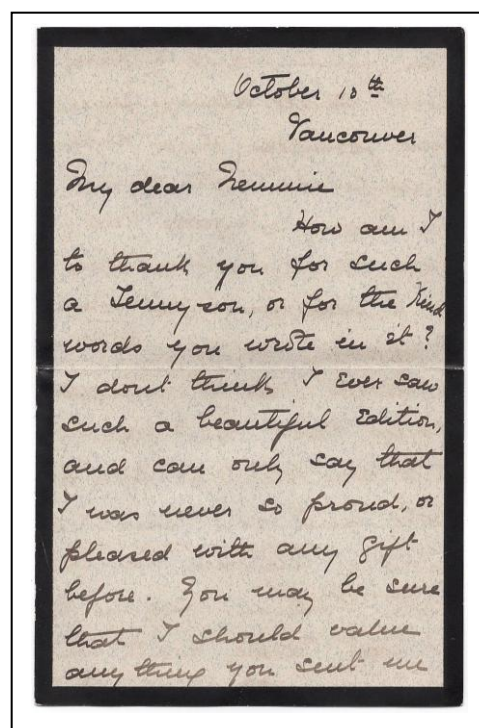 October 10th
Vancouver
My dear Nemmie
How am I
to thank you for such
a Tennyson, or for the kind
words you wrote in it?
I dont think I Ever saw
such a beautiful Edition,
and can only say that
I was never so proud, or
pleased with any gift
before. You may be sure
that I should value
anything you sent me